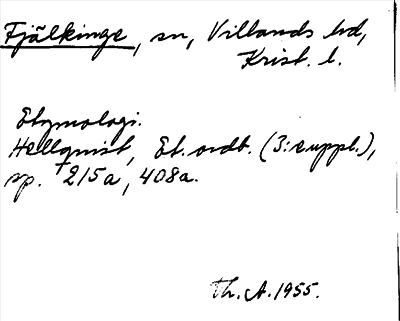 Fjälkinge, sn, Villands hd,
Krist. l.
Etymologi.
Hellquist, Et. ordb. (3:e uppl.),
sp. 215a, 408a.
Th. A. 1955.